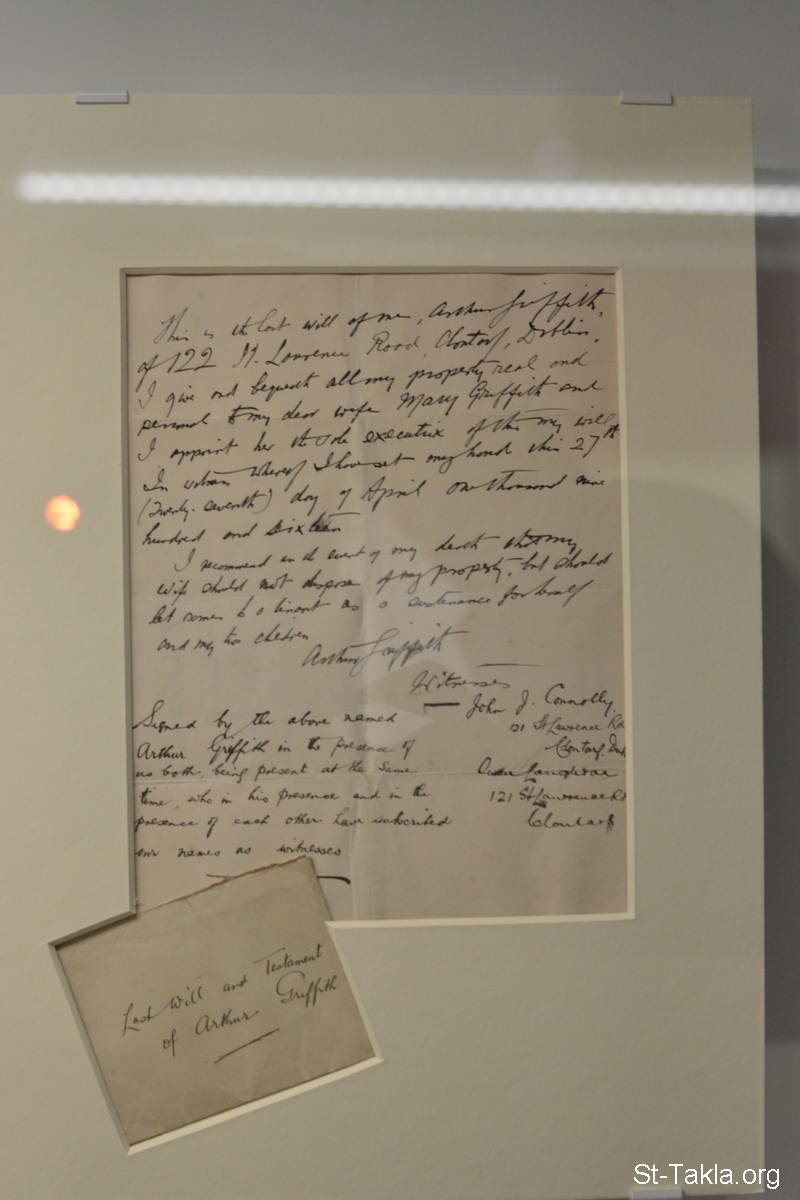 This is the last will of me, Arthur Griffith,
of 122 St. Lawrence Road, Clontarf, Dublin.
I give and bequeath all my property real and
personal to my dear wife Mary Griffith and
I appoint her the sole executrix of this my will
In witness whereof I have set my hand this 27th
(Twenty-seventh) day of April one thousand nine
hundred and sixteen
I recommend in the event of my death that my
wife should not dispose of my property, but should
let same to a tenant as a sustenance for herself
and my two children
Arthur Griffith
Witnesses
John J. Connolly
St Lawrence Rd
Clontarf
121 St Lawrence Rd
Clontarf
Signed by the above named
Arthur Griffith in the presence of
us both, being present at the same
time, who in his presence and in the
presence of each other have subscribed
our names as witnesses
Last Will and Testament
of Arthur Griffith
St-Takla.org